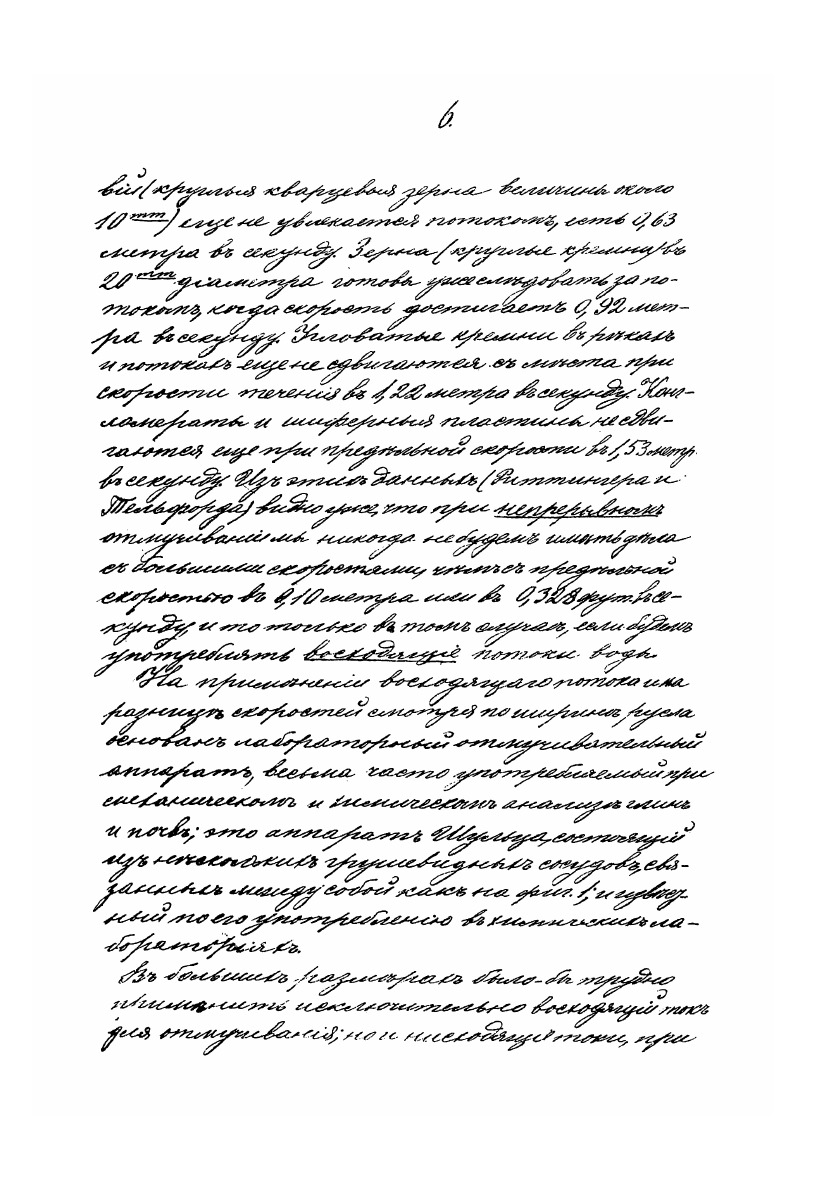 6.
вій (круглыя кварцевыя зерна величины около
10 mm) еще не увлекается потокомъ, есть 0,63
метра въ секунду. Зерна (круглые кремни) въ
20 mm діаметра готовы уже слѣдовать за по-
токомъ, когда скорость достигаетъ 0,92 мет-
ра въ секунду. Угловатые кремни въ рѣкахъ
и потокахъ еще не сдвигаются съ мѣста при
скорости теченія въ 1,22 метра въ секунду. Конг-
ломераты и шиферныя пластины не сдви-
гаются еще при предѣльной скорости въ 1,53 метр.
въ секунду. Изъ этихъ данныхъ (Риттингера и
Тельфорда) видно уже, что при непрерывномъ
отмучиваніи мы никогда не будемъ имѣть дѣла
съ большими скоростями, чѣмъ съ предѣльной
скоростью въ 0,10 метра или въ 0,328 фут. въ се-
кунду, и то только въ томъ случаѣ, если будемъ
употреблять восходящіе потоки воды.
На примѣненіи восходящаго потока и на
разницѣ скоростей смотря по ширинѣ русла
основанъ лабораторный отмучивательный
аппаратъ, весьма часто употребляемый при
механическомъ и химическомъ анализѣ глинъ
и почвъ; это аппаратъ Шульца, состоящій
изъ нѣсколькихъ грушевидныхъ сосудовъ, свя-
занныхъ между собой какъ на фиг. 1; и извѣст-
ный по его употребленію въ химическихъ ла-
бораторіяхъ.
Въ большихъ размѣрахъ было-бы трудно
примѣнить исключительно восходящій токъ
для отмучиванія; но и нисходящіе токи, при